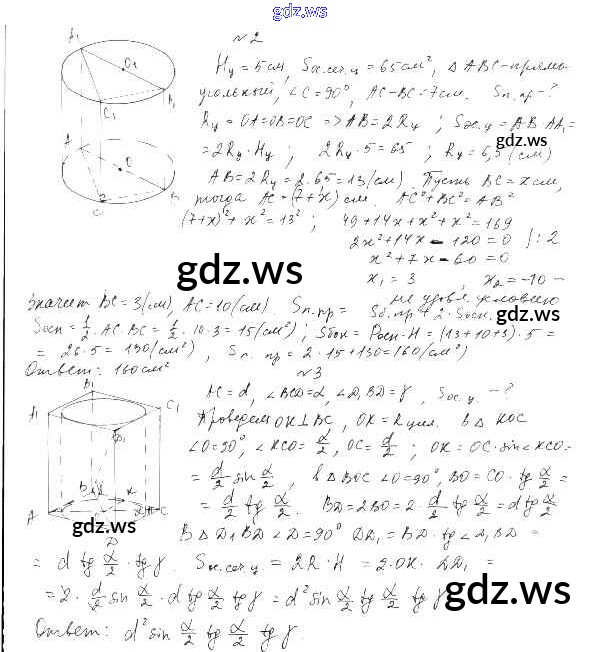 gdz.ws
№2
Hц = 5 см, Sос.сеч.ц = 65 см², △ABC - прямо-
угольный, ∠C = 90°, AC - BC = 7 см. Sп.пр - ?
Rц = OA = OB = OC => AB = 2Rц ; Sос.ц = AB · AA₁ =
= 2Rц · Hц ; 2Rц · 5 = 65 ; Rц = 6,5 (см)
AB = 2Rц = 2 · 6,5 = 13 (см) Пусть BC = x см,
тогда AC = (7+x) см. AC² + BC² = AB²
(7+x)² + x² = 13² ; 49 + 14x + x² + x² = 169
2x² + 14x - 120 = 0 /: 2
x² + 7x - 60 = 0
x₁ = 3 , x₂ = -10 -
не удовл. условию
Значит BC = 3 (см), AC = 10 (см). Sп.пр = Sб.пр + 2 · Sосн.
Sосн = 1/2 · AC · BC = 1/2 · 10 · 3 = 15 (см²) ; Sбок = Pосн · H = (13 + 10 + 3) · 5 =
= 26 · 5 = 130 (см²) , Sп.пр = 2 · 15 + 130 = 160 (см²)
Ответ: 160 см²
№3
AC = d, ∠BCD = α, ∠D₁BD = γ, Sос.ц. - ?
Проведем OK ⊥ BC, OK = Rцил. В △KOC
∠O = 90°, ∠KCO = α/2, OC = d/2 ; OK = OC · sin∠KCO =
= d/2 sin α/2, в △BOC ∠O = 90°, BO = CO · tg α/2 =
= d/2 tg α/2. BD = 2BO = 2 · d/2 tg α/2 = d tg α/2
В △D₁BD ∠D = 90° DD₁ = BD · tg∠D₁BD =
= d tg α/2 · tg γ. Sос.сеч.ц = 2R · H = 2 · OK · DD₁ =
= 2 · d/2 sin α/2 · d tg α/2 tg γ = d² sin α/2 tg α/2 tg γ
Ответ: d² sin α/2 tg α/2 tg γ.
A₁
O₁
B₁
C₁
A
O
B
C
B₁
A₁
C₁
D₁
B
K
A
C
D
gdz.ws
gdz.ws
gdz.ws
gdz.ws
gdz.ws
gdz.ws